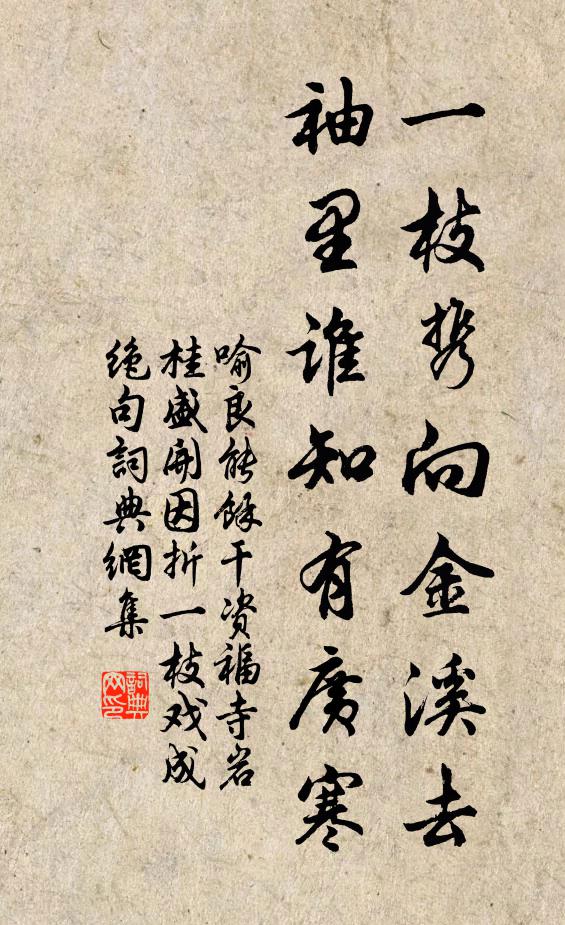 一枝携向金溪去
袖里谁知有廣寒
喻良能餘干资福寺岩
桂盛開因折一枝戏成
绝句詞典網集
詞典
网印